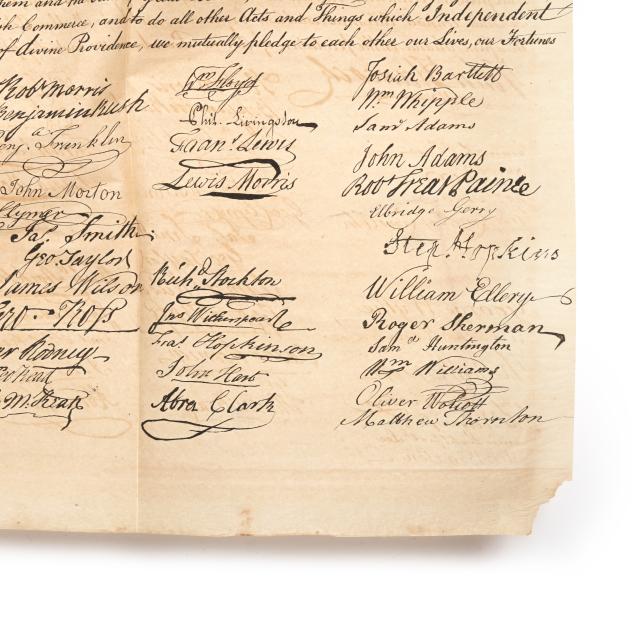 them and
Commerce, and to do all other Acts and Things which Independent
of divine Providence, we mutually pledge to each other our Lives, our Fortunes
Robt Morris
Benjamin Rush
Benj. Franklin
John Morton
Clymer
Jas. Smith
Geo. Taylor
James Wilson
Geo. Ross
Rodney
Read
M:Kean
Wm Floyd
Phil. Livingston
Frans. Lewis
Lewis Morris
Richd Stockton
Jno Witherspoon
Fras. Hopkinson
John Hart
Abra Clark
Josiah Bartlett
Wm Whipple
Saml Adams
John Adams
Robt Treat Paine
Elbridge Gerry
Step. Hopkins
William Ellery
Roger Sherman
Samel Huntington
Wm Williams
Oliver Wolcott
Matthew Thornton